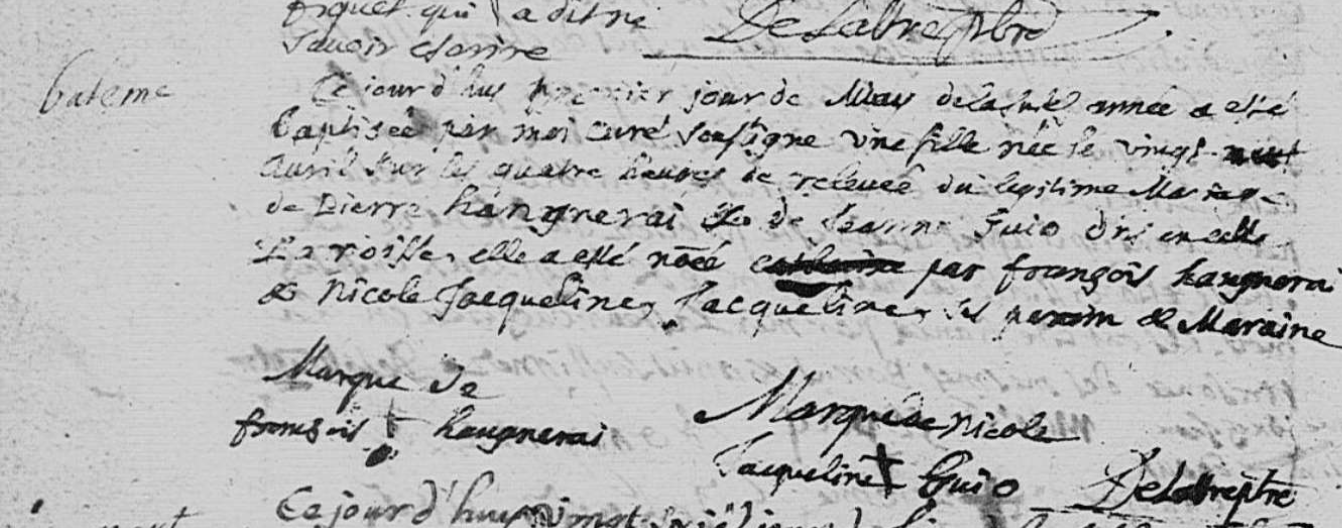 qui a dit ne Delattre pbre
savoir escrire
bateme
Ce jour d'huy premier jour de May de la susd année a esté
baptisée par moi curé soussigne une fille née le vingt
avril sur les quatre heures de relevée du legitime Mariage
de Pierre haugnerai & de Jeanne Guio de
Paroisse, elle a esté nõée par françois haugnerai
& Nicole Jacqueline, Jacqueline, ses parain & Maraine
Marque de
françois haugnerai
Marque de Nicole
Jacqueline Guio Delattre ptre
Ce jour d'huy